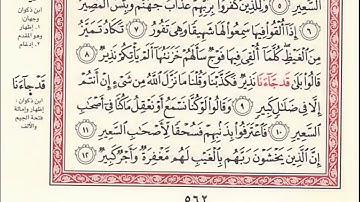 السَّعِيرِ ٥ وَلِلَّذِينَ كَفَرُوا بِرَبِّهِمْ عَذَابُ جَهَنَّمَ وَبِئْسَ الْمَصِيرُ
٦ إِذَا أُلْقُوا فِيهَا سَمِعُوا لَهَا شَهِيقًا وَهِيَ تَفُورُ ٧ تَكَادُ تَمَيَّزُ
مِنَ الْغَيْظِ كُلَّمَا أُلْقِيَ فِيهَا فَوْجٌ سَأَلَهُمْ خَزَنَتُهَا أَلَمْ يَأْتِكُمْ نَذِيرٌ ٨
قَالُوا بَلَى قَدْ جَاءَنَا نَذِيرٌ فَكَذَّبْنَا وَقُلْنَا مَا نَزَّلَ اللَّهُ مِنْ شَيْءٍ إِنْ أَنْتُمْ
إِلَّا فِي ضَلَالٍ كَبِيرٍ ٩ وَقَالُوا لَوْ كُنَّا نَسْمَعُ أَوْ نَعْقِلُ مَا كُنَّا فِي أَصْحَابِ
السَّعِيرِ ١٠ فَاعْتَرَفُوا بِذَنْبِهِمْ فَسُحْقًا لِأَصْحَابِ السَّعِيرِ ١١
إِنَّ الَّذِينَ يَخْشَوْنَ رَبَّهُمْ بِالْغَيْبِ لَهُمْ مَغْفِرَةٌ وَأَجْرٌ كَبِيرٌ ١٢
٥٦٢
ابن ذكوان
وجهان:
١- إظهار
وهو المقدم
٢- إدغام
قَدْ جَاءَنَا
ابن ذكوان:
إظهار وإمالة
فتحة الجيم
والألف